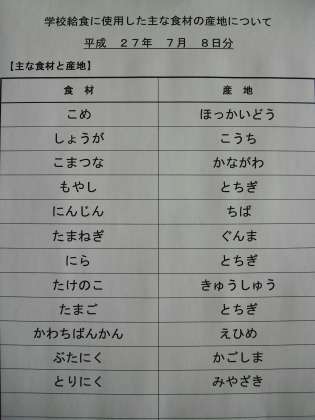 学校給食に使用した主な食材の産地について
平成　２７年　７月　８日分
【主な食材と産地】
食　材　産　地
こめ　ほっかいどう
しょうが　こうち
こまつな　かながわ
もやし　とちぎ
にんじん　ちば
たまねぎ　ぐんま
にら　とちぎ
たけのこ　きゅうしゅう
たまご　とちぎ
かわちばんかん　えひめ
ぶたにく　かごしま
とりにく　みやざき